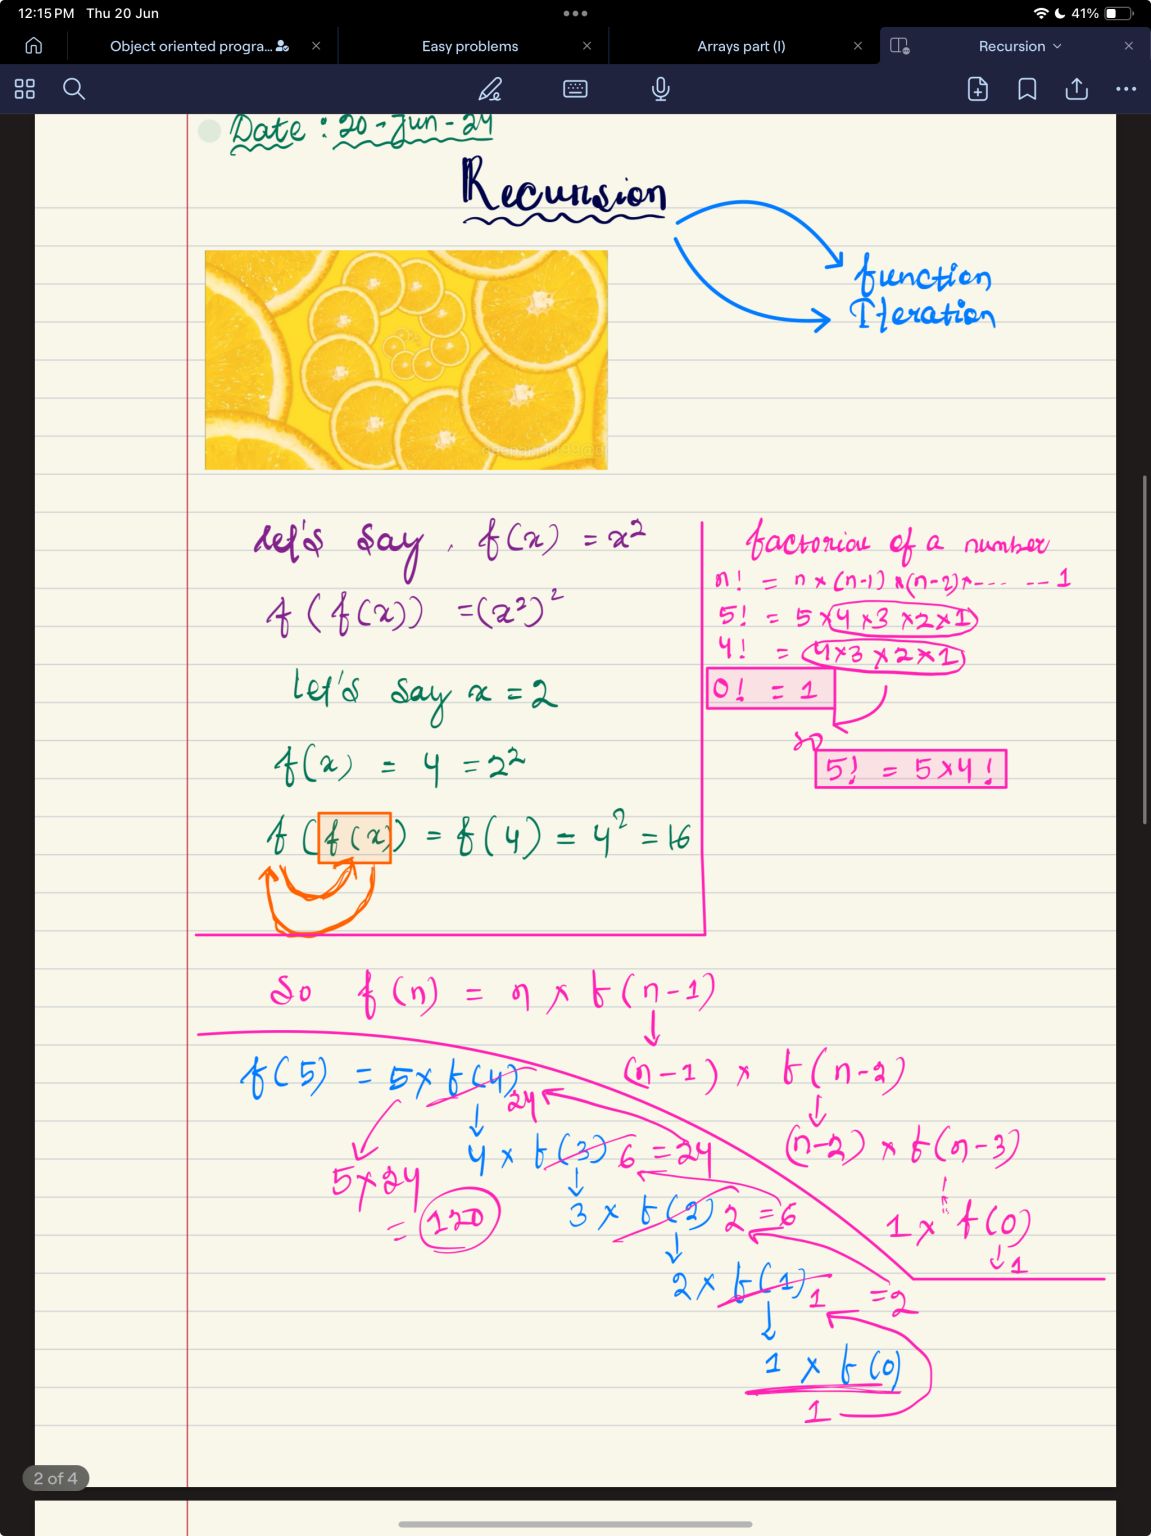 12:15 PM Thu 20 Jun
41%
Object oriented progra...
Easy problems
Arrays part (I)
Recursion
Date : 20-Jun-24
Recursion
function
Iteration
let's say, f(x) = x²
f(f(x)) = (x²)²
let's say x = 2
f(x) = 4 = 2²
f(f(x)) = f(4) = 4² = 16
factorial of a number
n! = n × (n-1) × (n-2) × ---- --1
5! = 5 × 4 × 3 × 2 × 1
4! = 4 × 3 × 2 × 1
0! = 1
so
5! = 5 × 4!
So f(n) = n × f(n-1)
(n-1) × f(n-2)
(n-2) × f(n-3)
1 × f(0)
1
f(5) = 5 × f(4) 24
4 × f(3) 6 = 24
5 × 24
= 120
3 × f(2) 2 = 6
2 × f(1) 1 = 2
1 × f(0)
1
2 of 4